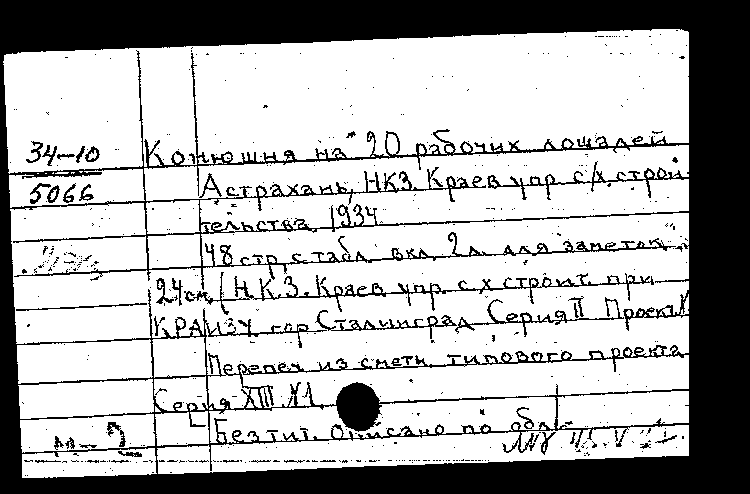 34-10 Конюшня на 20 рабочих лошадей
5066 Астрахань, НКЗ Краев упр с/х строи-
тельства, 1934
48 стр, с табл. вкл. 2 л. для заметок
24 см, (Н.К.З. Краев упр. с х строит. при
КРАИЗУ гор Сталинград Серия II Проект №
Перепеч из сметн. типового проекта
Серия XIII №1.
М-2 Без тит. Описано по обл.